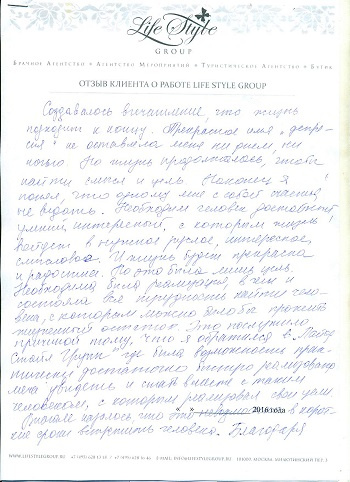 Life Style
GROUP
Брачное Агентство • Агентство Мероприятий • Туристическое Агентство • Бутик
ОТЗЫВ КЛИЕНТА О РАБОТЕ LIFE STYLE GROUP
Создавалось впечатление, что жизнь
подходит к концу. Прекрасное имя „депрес-
сия" не оставляла меня ни днем, ни
ночью. Но жизнь продолжалась, чтобы
найти смысл и цель. Наконец я
понял, что одному мне с собой счастья
не видать. Необходим человек достойный
умный интересный, с которым жизнь
войдет в нужное русло, интересное,
смысловое. И жизнь будет прекрасна
и радостней. Но это была лишь цель.
Необходима была реализация, в чем и
состояла вся трудность найти чело-
века, с которым можно было бы прожить
жизненный остаток. Это послужило
причиной тому, что я обратился в „Лайф
Стайл Групп" где была возможность прак-
тически достаточно быстро реализовано
меня увидеть и стать вместе с таким
человеком, с которым реализовал свои цели.
Вначале казалось, что это 2016 года в корот-
кие сроки встретить человека. Благодаря
WWW.LIFESTYLEGROUP.RU